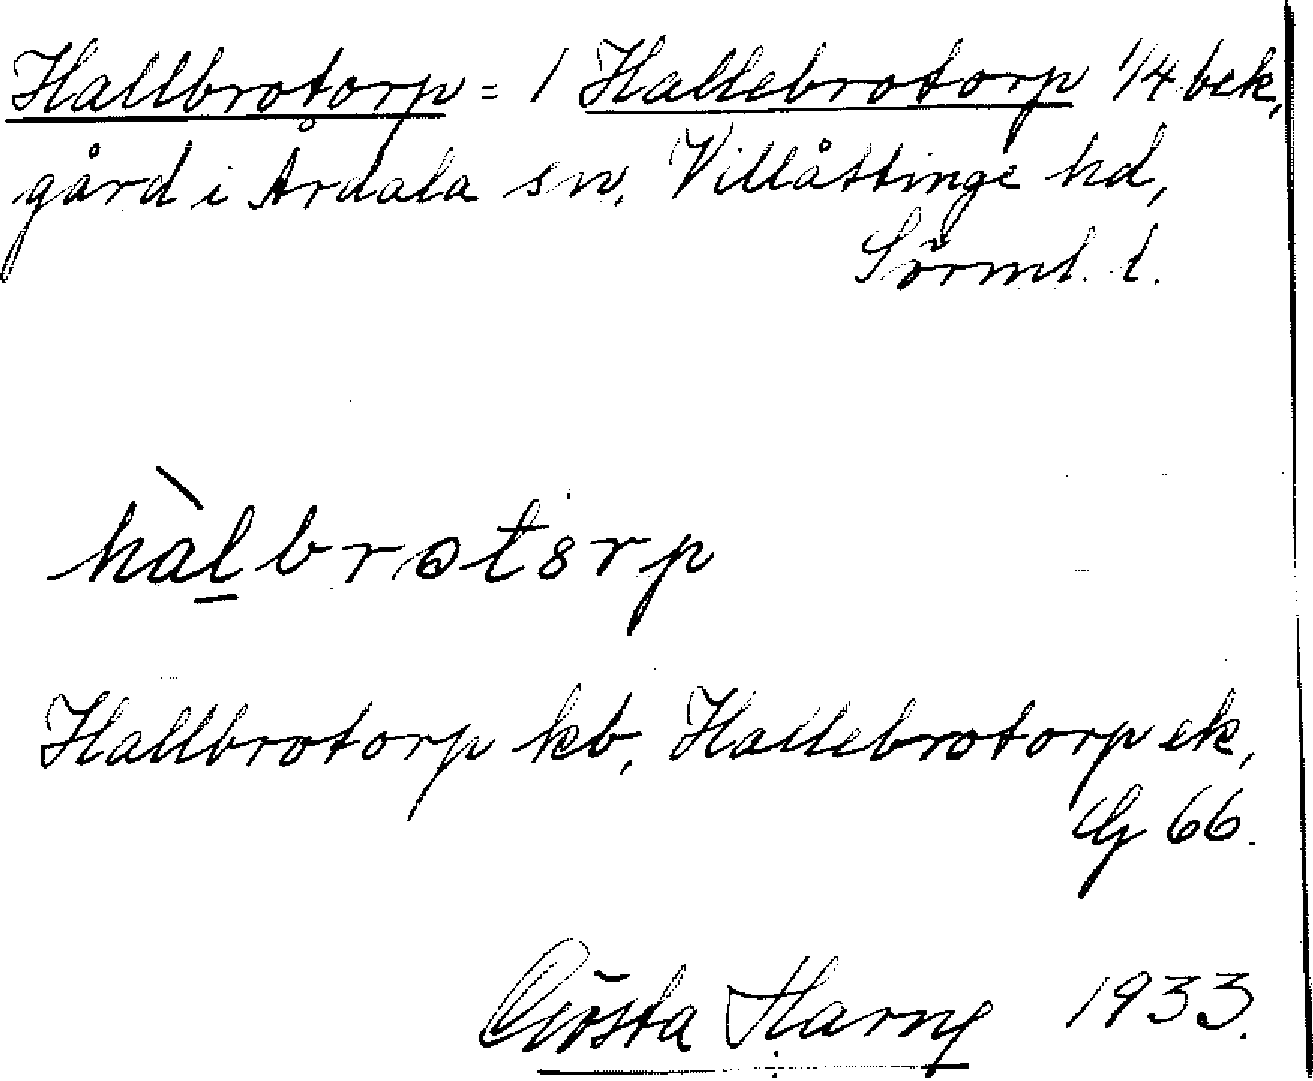 Hallbrotorp = 1 Hallebrotorp 1/4 bek,
gård i Årdala sn, Villåttinge hd,
Sörml. l.
hàlbrotorp
Hallbrotorp kb, Hallebrotorp ek,
G 66.
Gösta Harng 1933.